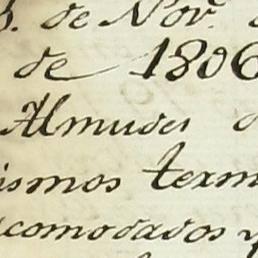 de Nov.
de 1806
Almudes
ismos term
comodados y